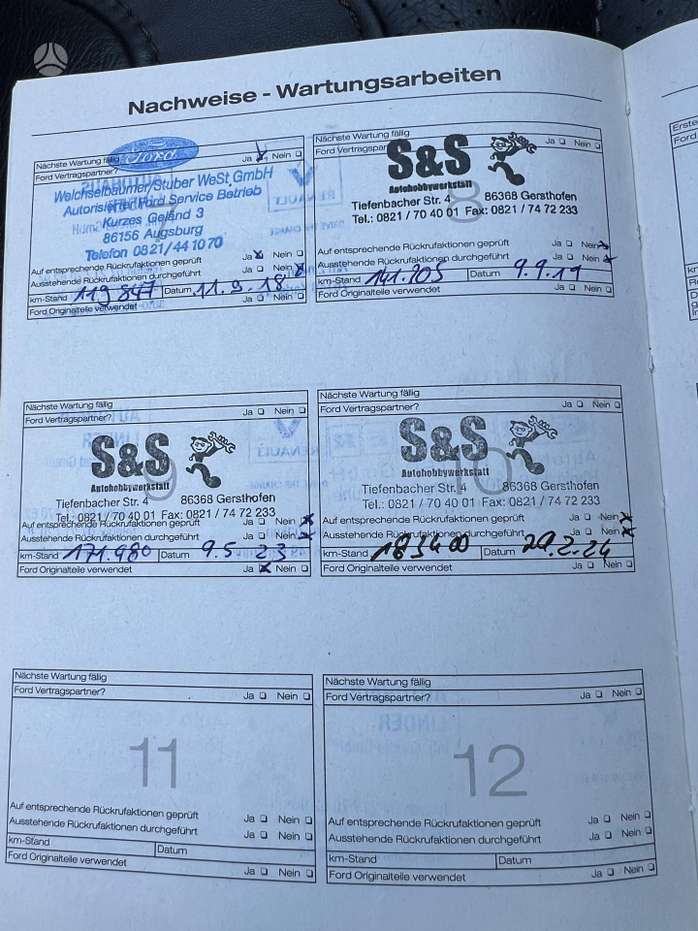 Nachweise - Wartungsarbeiten
Nächste Wartung fällig
Ford Vertragspartner? Ja Nein
Ford
Welchselbaumer/Stuber WeSt GmbH
Autorisierter Ford Service Betrieb
Kurzes Geländ 3
86156 Augsburg
Telefon 0821/441070
Auf entsprechende Rückrufaktionen geprüft Ja Nein
Ausstehende Rückrufaktionen durchgeführt Ja Nein
km-Stand 119847 Datum 11.9.18
Ford Originalteile verwendet Ja Nein
Nächste Wartung fällig
Ford Vertragspar Ja Nein
8
S&S
Autohobbywerkstatt
Tiefenbacher Str. 4 86368 Gersthofen
Tel.: 0821 / 70 40 01 Fax: 0821 / 74 72 233
Auf entsprechende Rückrufaktionen geprüft Ja Nein
Ausstehende Rückrufaktionen durchgeführt Ja Nein
km-Stand 141.205 Datum 9.9.19
Ford Originalteile verwendet Ja Nein
Nächste Wartung fällig
Ford Vertragspartner? Ja Nein
9
S&S
Autohobbywerkstatt
Tiefenbacher Str. 4 86368 Gersthofen
Tel.: 0821 / 70 40 01 Fax: 0821 / 74 72 233
Auf entsprechende Rückrufaktionen geprüft Ja Nein
Ausstehende Rückrufaktionen durchgeführt Ja Nein
km-Stand 171.980 Datum 9.5 23
Ford Originalteile verwendet Ja Nein
Nächste Wartung fällig
Ford Vertragspartner? Ja Nein
10
S&S
Autohobbywerkstatt
Tiefenbacher Str. 4 86368 Gersthofen
Tel.: 0821 / 70 40 01 Fax: 0821 / 74 72 233
Auf entsprechende Rückrufaktionen geprüft Ja Nein
Ausstehende Rückrufaktionen durchgeführt Ja Nein
km-Stand 183400 Datum 29.2.24
Ford Originalteile verwendet Ja Nein
Nächste Wartung fällig
Ford Vertragspartner? Ja Nein
11
Auf entsprechende Rückrufaktionen geprüft Ja Nein
Ausstehende Rückrufaktionen durchgeführt Ja Nein
km-Stand Datum
Ford Originalteile verwendet Ja Nein
Nächste Wartung fällig
Ford Vertragspartner? Ja Nein
12
Auf entsprechende Rückrufaktionen geprüft Ja Nein
Ausstehende Rückrufaktionen durchgeführt Ja Nein
km-Stand Datum
Ford Originalteile verwendet Ja Nein
Erste
Ford